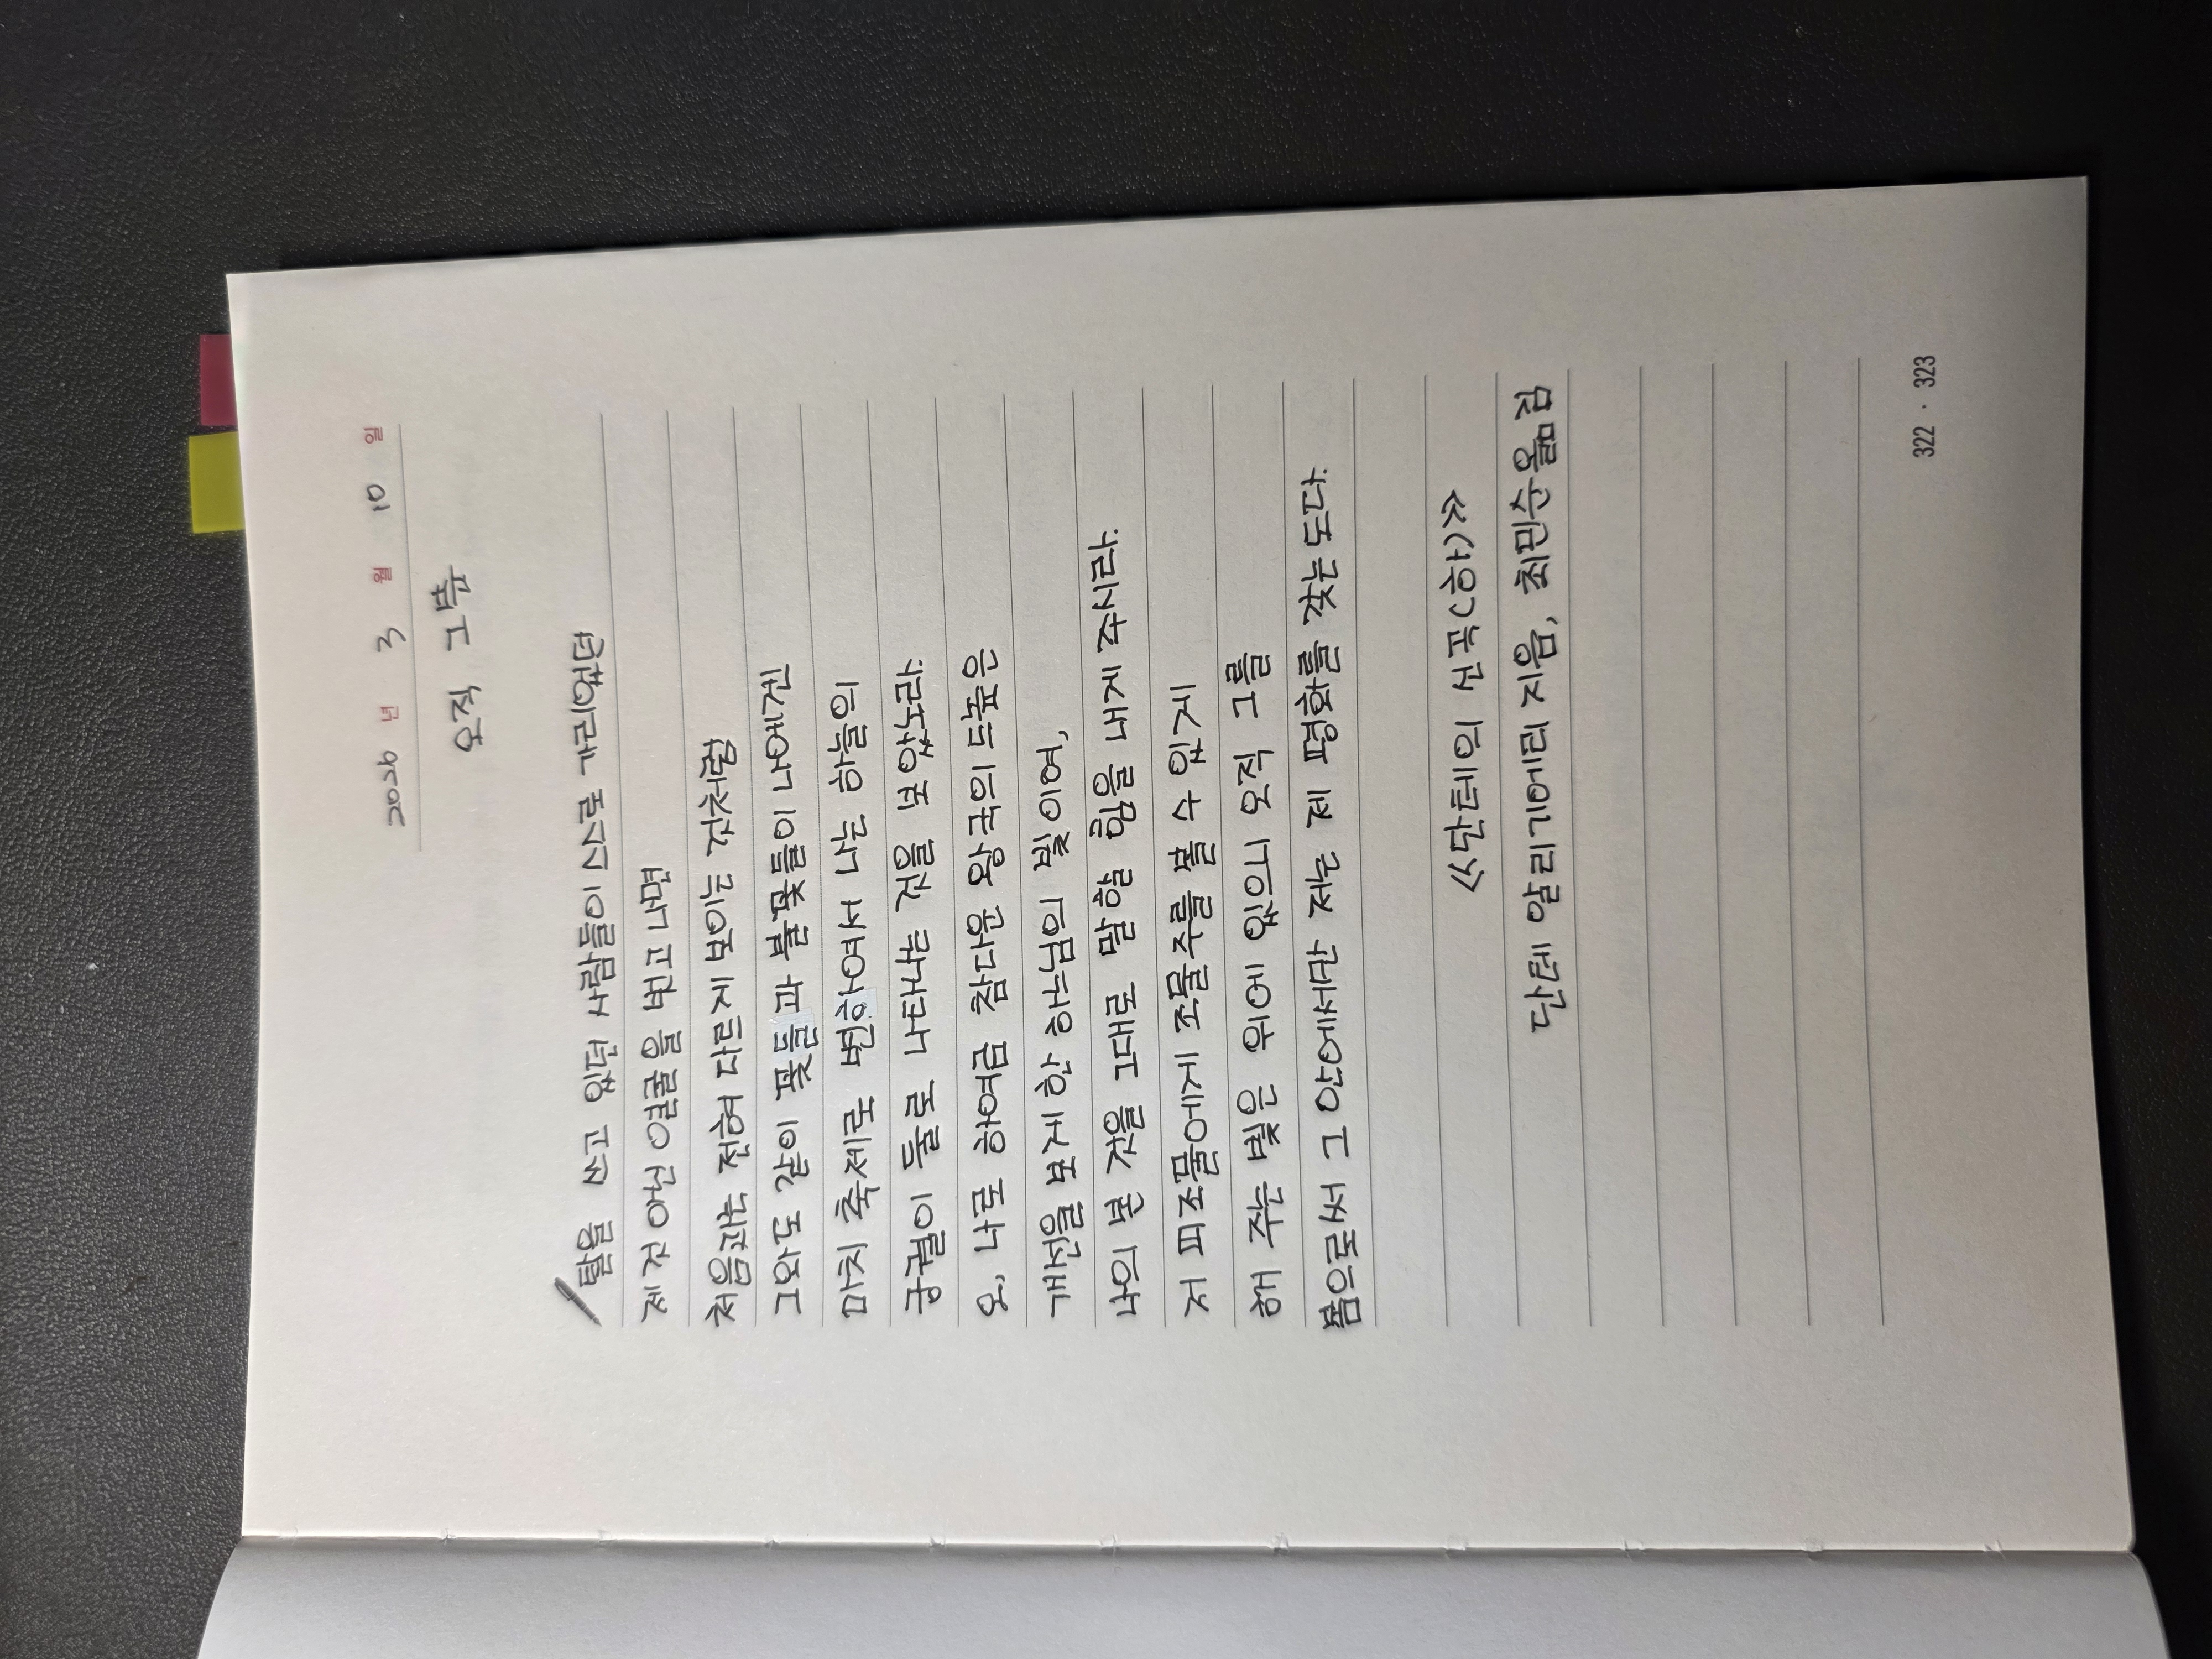 2026 년 3 월 10 일
오직 그 품
탈을 쓰고 있던 사람들이 스스로 가리었던
제 것 아닌 얼굴을 벗고 나면
처음과는 전혀 다르게 보이는 것처럼
그와도 같이 꽃들과 불꽃들이 나에겐
마치 축제로 변하여서 나는 하늘의
궁궐이 둘로 나타나는 것을 보았노라.
오, 나로 하여금 참다운 왕국의 드높은
개선을 보게 한 하느님의 빛이여,
나의 본 것을 그대로 말할 힘을 내게 주시라.
저 피조물에게 조물주를 뵐 수 있게
해 주는 빛은 위에 있으니 오직 그를
봄으로써 그 안에서만 저는 제 평화를 갖는도다.
《단테의 신곡(하)》
단테 알리기에리 지음, 최민순 옮김
322 · 323